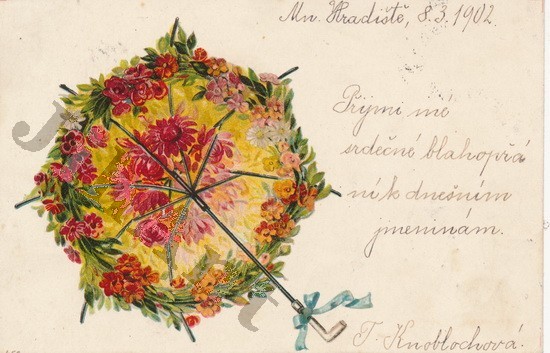 Mn. Hradiště, 8.3.1902
Přijmi mé
srdečné blahopřá
ní k dnešním
jmeninám.
T. Knoblochová.